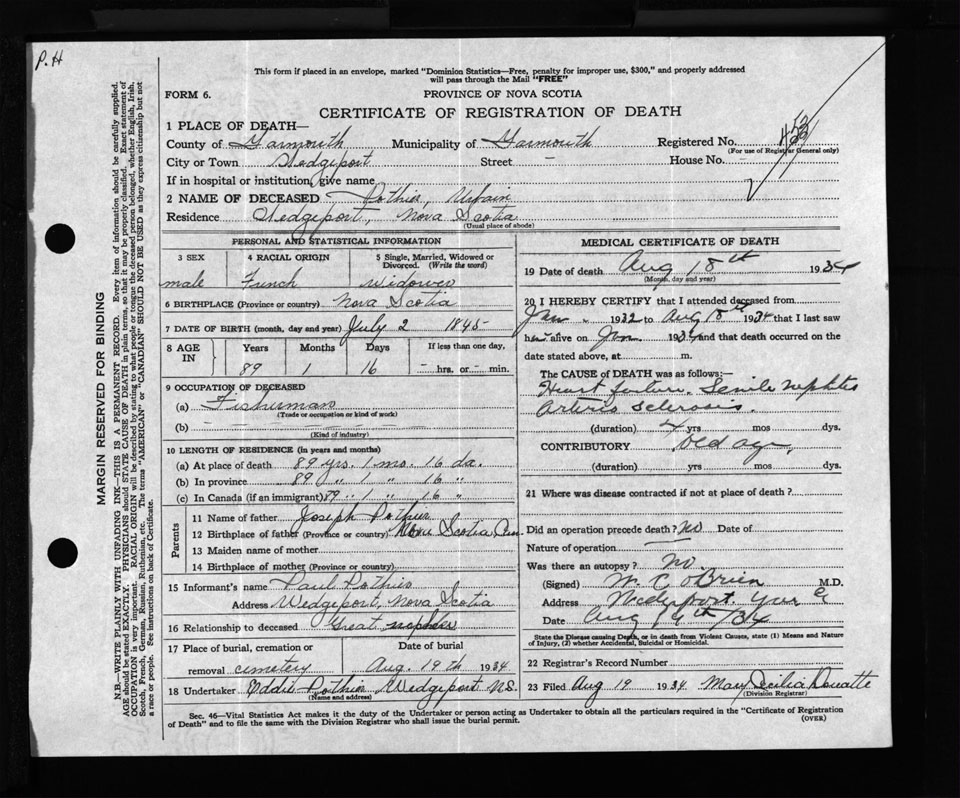 P.H
This form if placed in an envelope, marked "Dominion Statistics—Free, penalty for improper use, $300," and properly addressed
will pass through the Mail "FREE"
FORM 6.
PROVINCE OF NOVA SCOTIA
CERTIFICATE OF REGISTRATION OF DEATH
1 PLACE OF DEATH—
County of Yarmouth Municipality of Yarmouth Registered No.
(For use of Registrar General only)
City or Town Wedgeport Street - House No. -
If in hospital or institution, give name
2 NAME OF DECEASED Pothier, Urbain
Residence Wedgeport, Nova Scotia
(Usual place of abode)
PERSONAL AND STATISTICAL INFORMATION
3 SEX 4 RACIAL ORIGIN 5 Single, Married, Widowed or
Divorced. (Write the word)
male French Widower
6 BIRTHPLACE (Province or country) Nova Scotia
7 DATE OF BIRTH (month, day and year) July 2 1845
8 AGE IN Years Months Days If less than one day,
89 1 16 - hrs. or - min.
9 OCCUPATION OF DECEASED
(a) Fisherman
(Trade or occupation or kind of work)
(b)
(Kind of industry)
10 LENGTH OF RESIDENCE (in years and months)
(a) At place of death 89 yrs. 1 mo. 16 da.
(b) In province 89 " 1 " 16 "
(c) In Canada (if an immigrant) 89 " 1 " 16 "
Parents
11 Name of father Joseph Pothier
12 Birthplace of father (Province or country) Nova Scotia Can.
13 Maiden name of mother
14 Birthplace of mother (Province or country)
15 Informant's name Paul Pothier
Address Wedgeport, Nova Scotia
16 Relationship to deceased Great nephew
17 Place of burial, cremation or Date of burial
removal cemetery Aug. 19th 1934
18 Undertaker Eddie Pothier Wedgeport N.S.
(Name and address)
MEDICAL CERTIFICATE OF DEATH
19 Date of death Aug 18th 1934
(Month, day and year)
20 I HEREBY CERTIFY that I attended deceased from
Jan 1932 to Aug 18th 1934 that I last saw
h alive on Jan 1934 and that death occurred on the
date stated above, at m.
The CAUSE of DEATH was as follows:—
Heart failure. Senile nephitis
Arterio sclerosis.
(duration) 4 yrs mos dys.
CONTRIBUTORY Old age,
(duration) yrs mos dys.
21 Where was disease contracted if not at place of death ?
Did an operation precede death? No Date of
Nature of operation
Was there an autopsy ? No
(Signed) M. C. O'Brien M.D.
Address Wedgeport, Yar Co
Date Aug /34
State the Disease causing Death, or in death from Violent Causes, state (1) Means and Nature
of Injury, (2) whether Accidental, Suicidal or Homicidal.
22 Registrar's Record Number
23 Filed Aug 19 1934 Mary Cecilia Doucette
(Division Registrar)
Sec. 46—Vital Statistics Act makes it the duty of the Undertaker or person acting as Undertaker to obtain all the particulars required in the "Certificate of Registration
of Death" and to file the same with the Division Registrar who shall issue the burial permit.
(OVER)
MARGIN RESERVED FOR BINDING
N.B.—WRITE PLAINLY WITH UNFADING INK—THIS IS A PERMANENT RECORD. Every item of information should be carefully supplied.
AGE should be stated EXACTLY. PHYSICIANS should STATE CAUSE OF DEATH in plain terms, so that it may be properly classified. Exact statement of
OCCUPATION is very important. RACIAL ORIGIN will be described by stating to what people or tongue the deceased person belonged, whether English, Irish,
Scotch, French, German, Russian, Ruthenian, etc. The terms "AMERICAN" or "CANADIAN" SHOULD NOT BE USED as they express citizenship but not
a race or people. See instructions on back of Certificate.